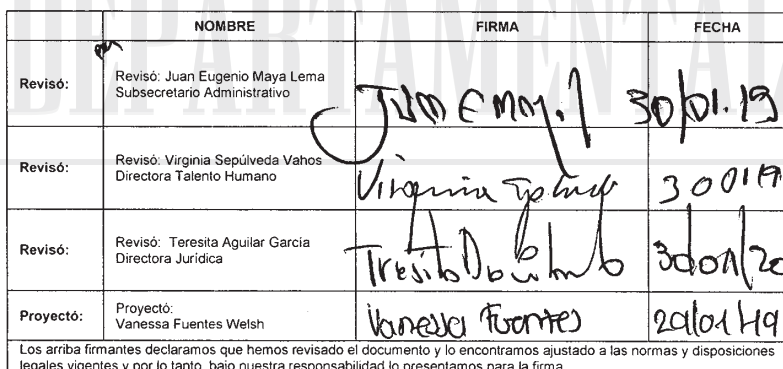 DEPARTAMENTAL
NOMBRE FIRMA FECHA
Revisó: Revisó: Juan Eugenio Maya Lema
Subsecretario Administrativo
Juan E Maya. 30/01.19
Revisó: Revisó: Virginia Sepúlveda Vahos
Directora Talento Humano
Virginia 300119
Revisó: Revisó: Teresita Aguilar García
Directora Jurídica
30/01/20
Proyectó: Proyectó:
Vanessa Fuentes Welsh
Vanessa Fuentes 29/01/19
Los arriba firmantes declaramos que hemos revisado el documento y lo encontramos ajustado a las normas y disposiciones
legales vigentes y por lo tanto, bajo nuestra responsabilidad lo presentamos para la firma.